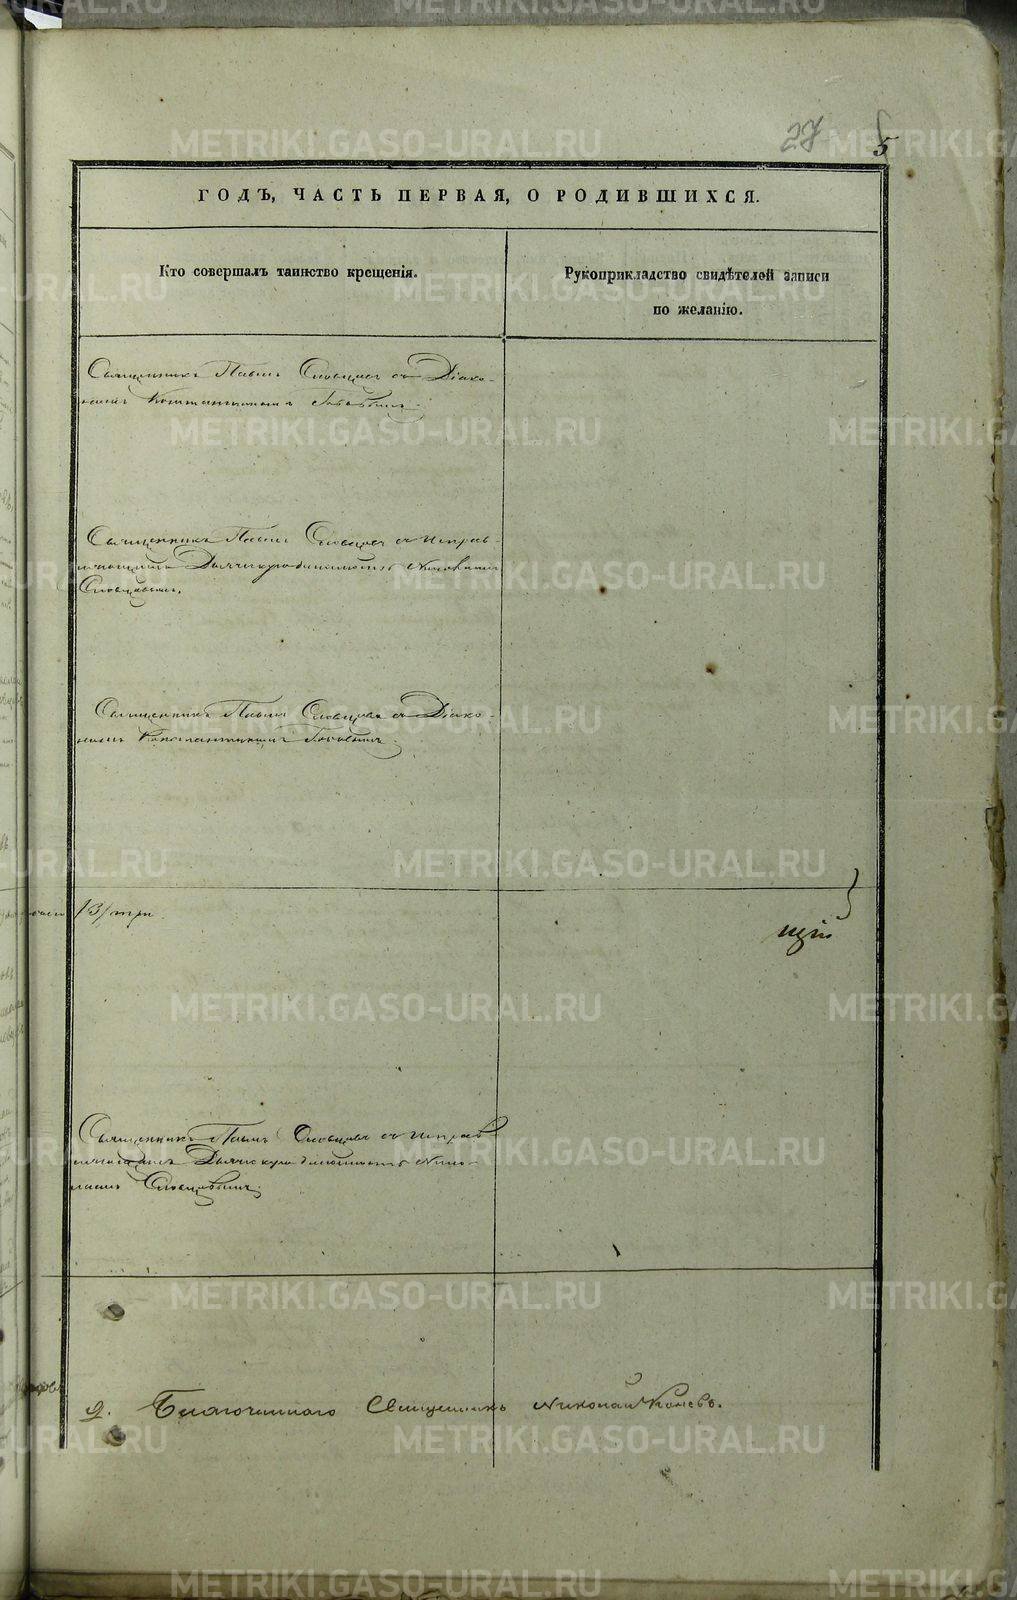 METRIKI.GASO-URAL.RU
27 5
ГОДЪ, ЧАСТЬ ПЕРВАЯ, О РОДИВШИХСЯ.
Кто совершалъ таинство крещенія.
Рукоприкладство свидѣтелей записи
по желанію.
Священникъ Павелъ Словцовъ съ Діако-
номъ Константиномъ
Священникъ Павелъ Словцовъ съ исправ-
ляющимъ Дьячкову должность Николаемъ
Словцовымъ.
Священникъ Павелъ Словцовъ съ Діако-
номъ Константиномъ
/3/ три.
щій
Священникъ Павелъ Словцовъ съ исправ-
ляющимъ Дьячкову должность Нико-
лаемъ Словцовымъ.
Благочиннаго Священникъ Николай Коневъ.